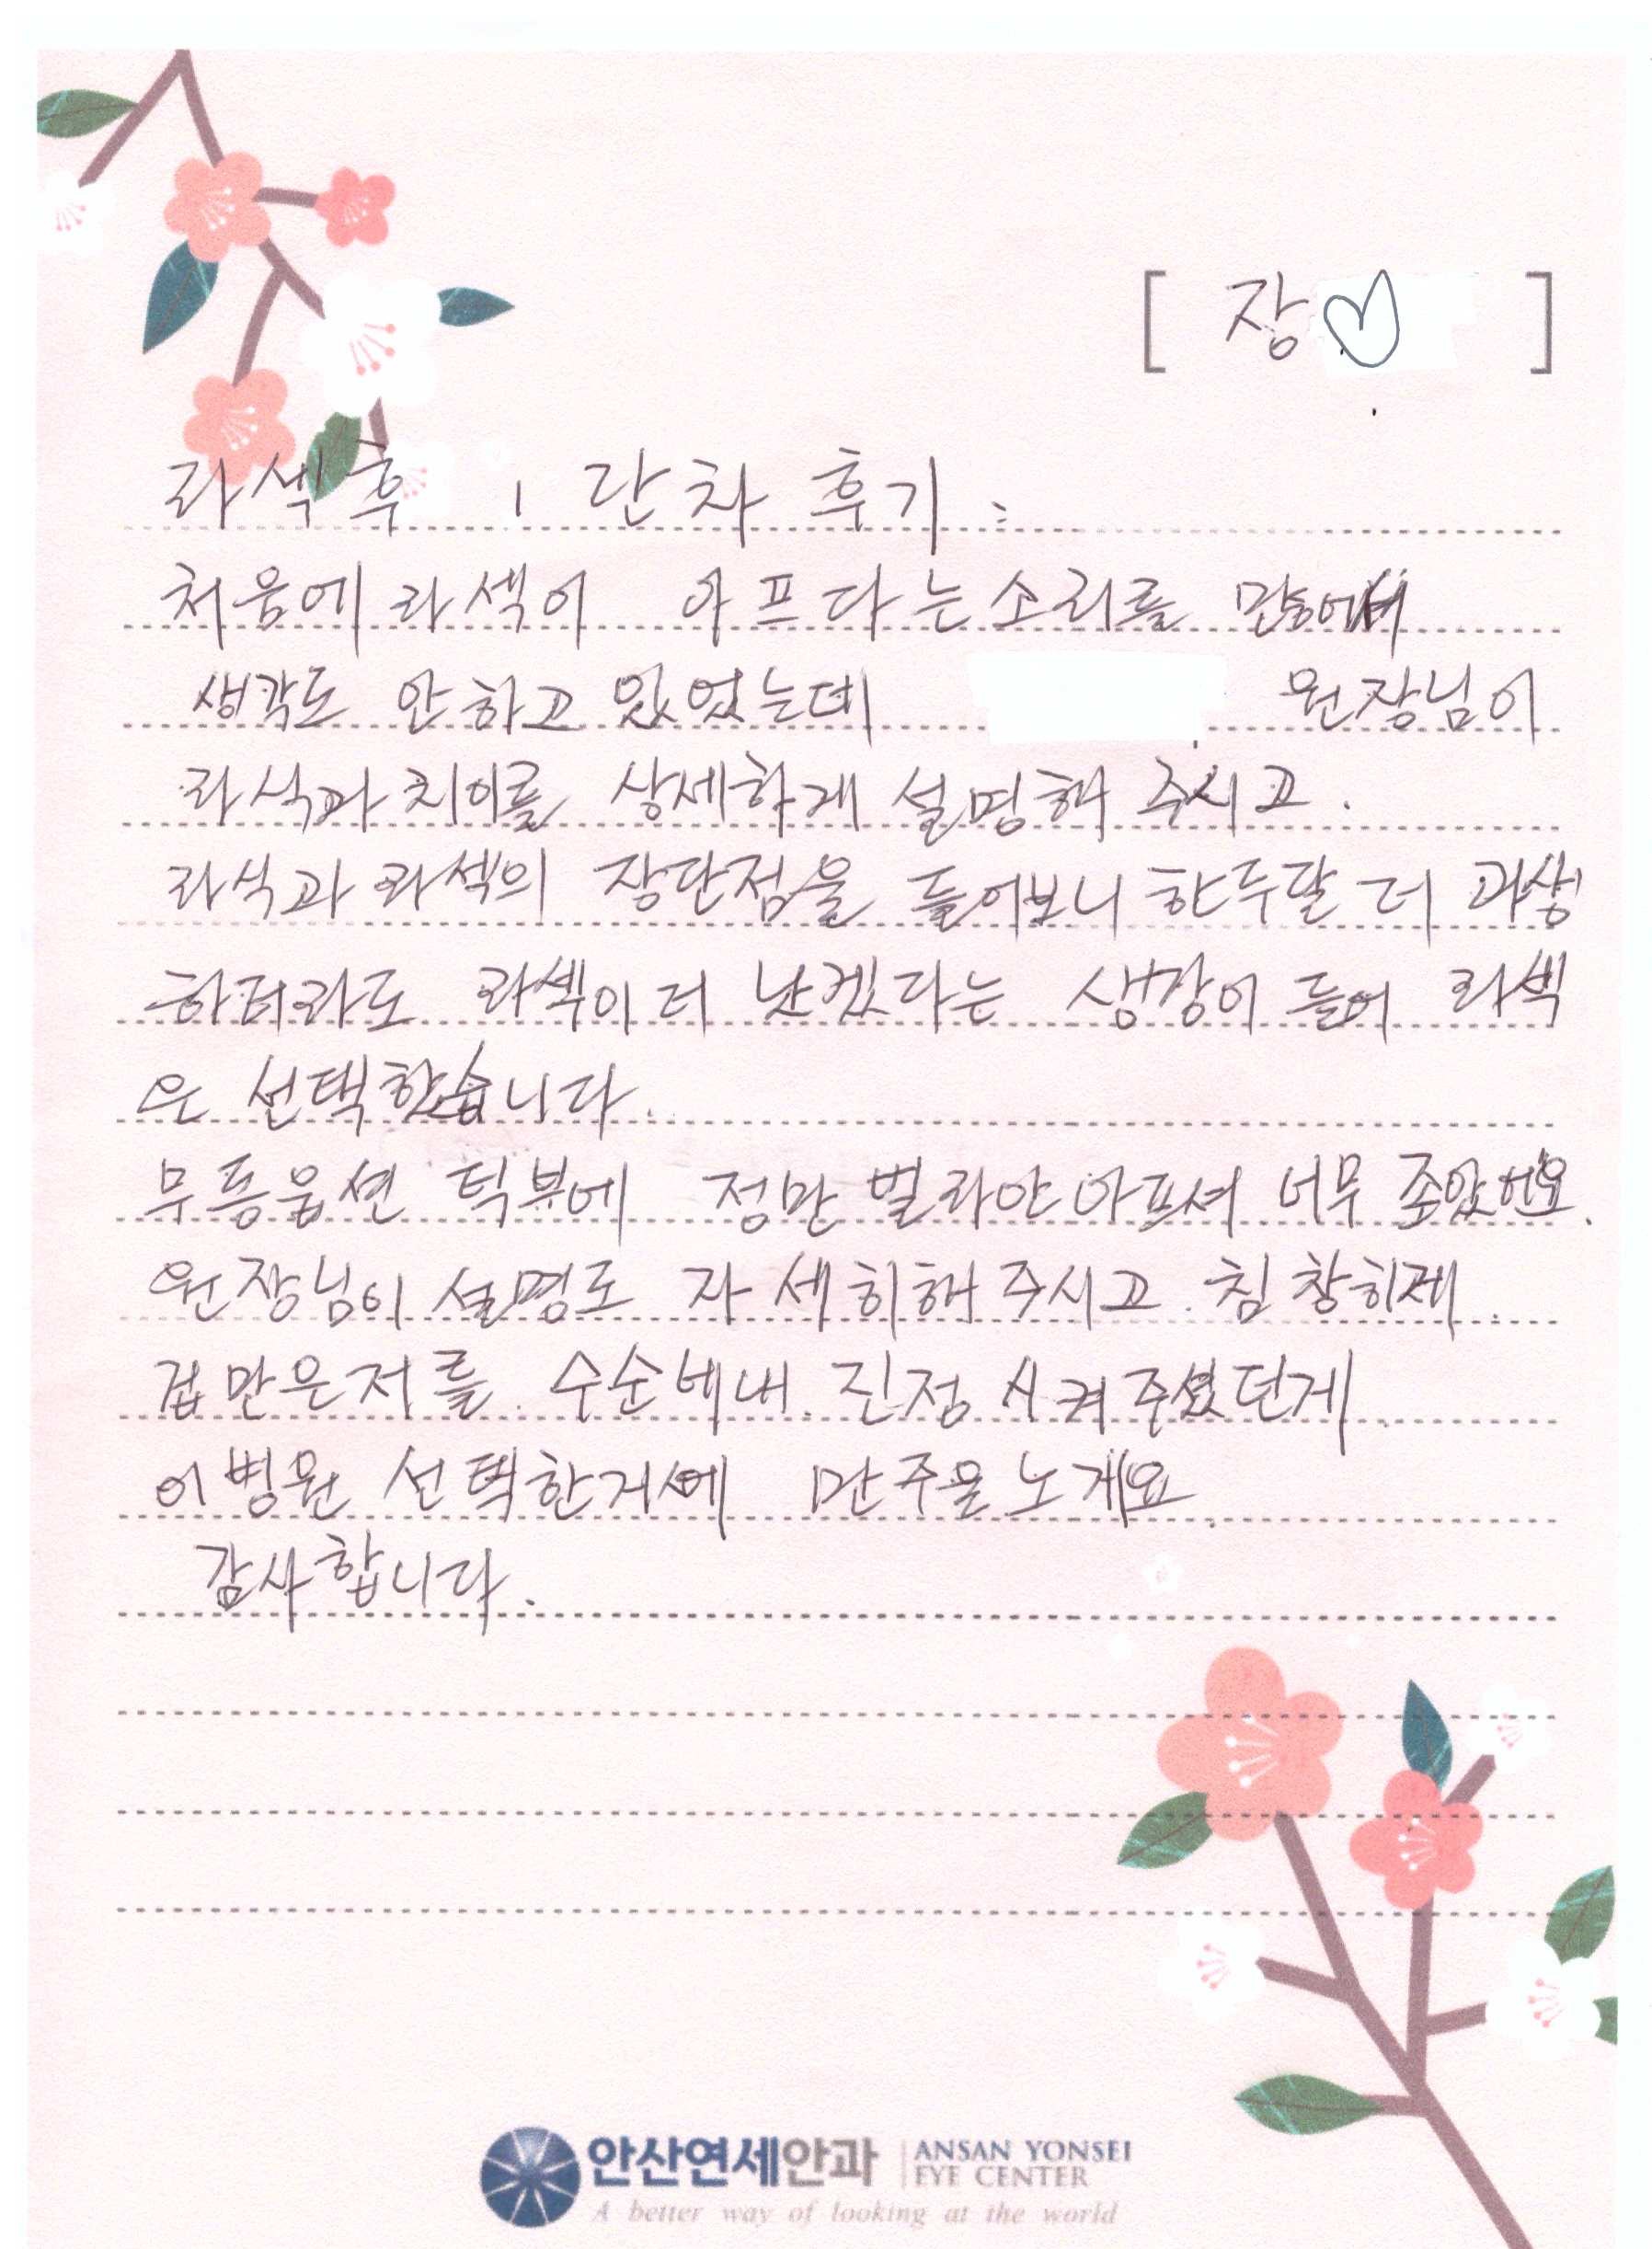 [ 장♡ ]
라섹후 1단차 후기 :
처음에 라섹이 아프다는소리를
생각도 안하고 있었는데 원장님이
라식과치이를 상세하게 설명해 주시고.
라식과 라섹의 장단점을 들어보니 한두달 더 고생
하더라도 라섹이 더 낫겠다는 생강이 들어 라섹
은 선택했습니다.
무통옵션 턱부에 정만 별라안아프셔 너무 좋았어요.
원장님이 설명도 자세히해주시고. 침창히게
겁만은저를 수순베내 진정시켜주셨던게
이병원 선택한거에 만주을노게요.
감사합니다.
안산연세안과 ANSAN YONSEI
EYE CENTER
A better way of looking at the world